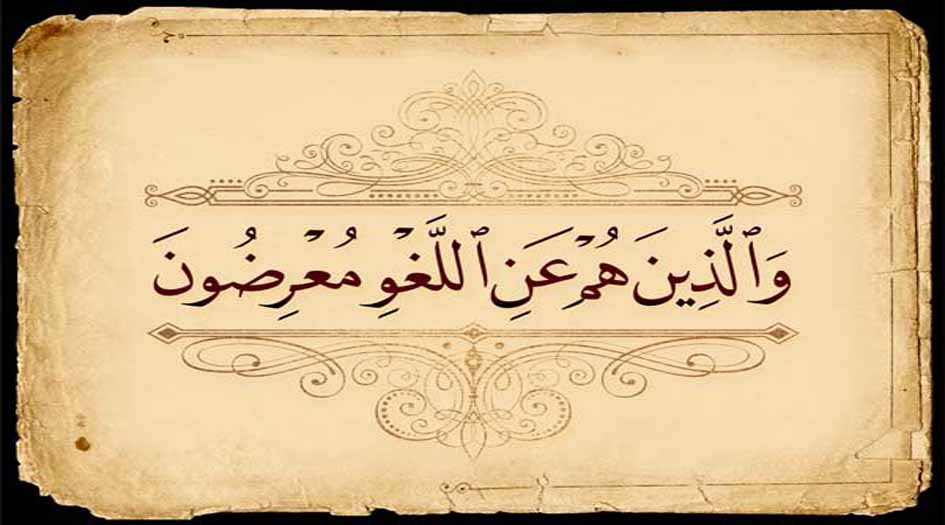 وَٱلَّذِينَ هُمْ عَنِ ٱللَّغْوِ مُعْرِضُونَ